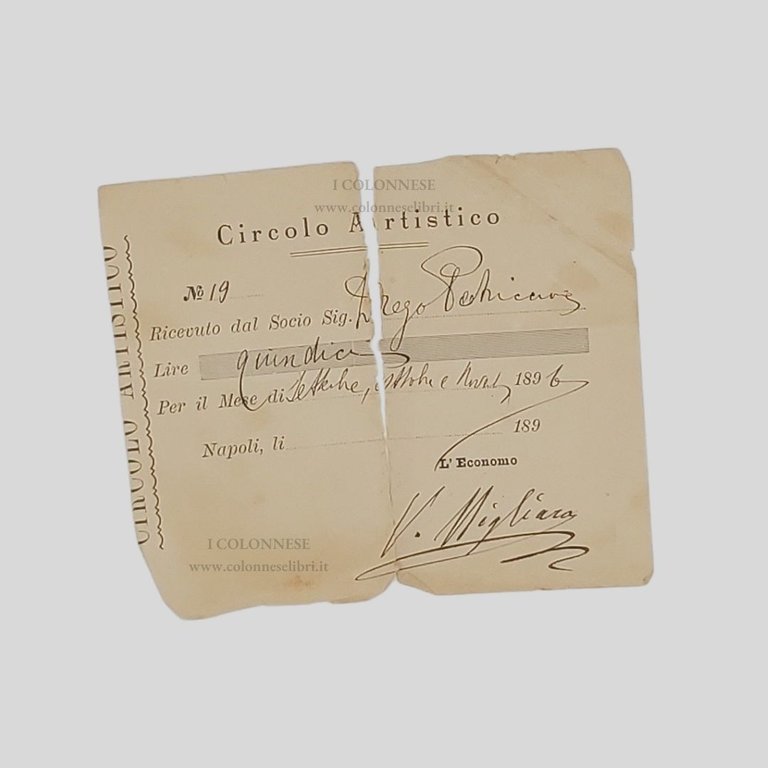 I COLONNESE
www.colonneselibri.it
Circolo Artistico
CIRCOLO ARTISTICO
№ 19
Ricevuto dal Socio Sig.
Lire quindici
Per il Mese di Settembre, Ottobre e 1896
Napoli, li 189
L'Economo
V. Migliaro
I COLONNESE
www.colonneselibri.it